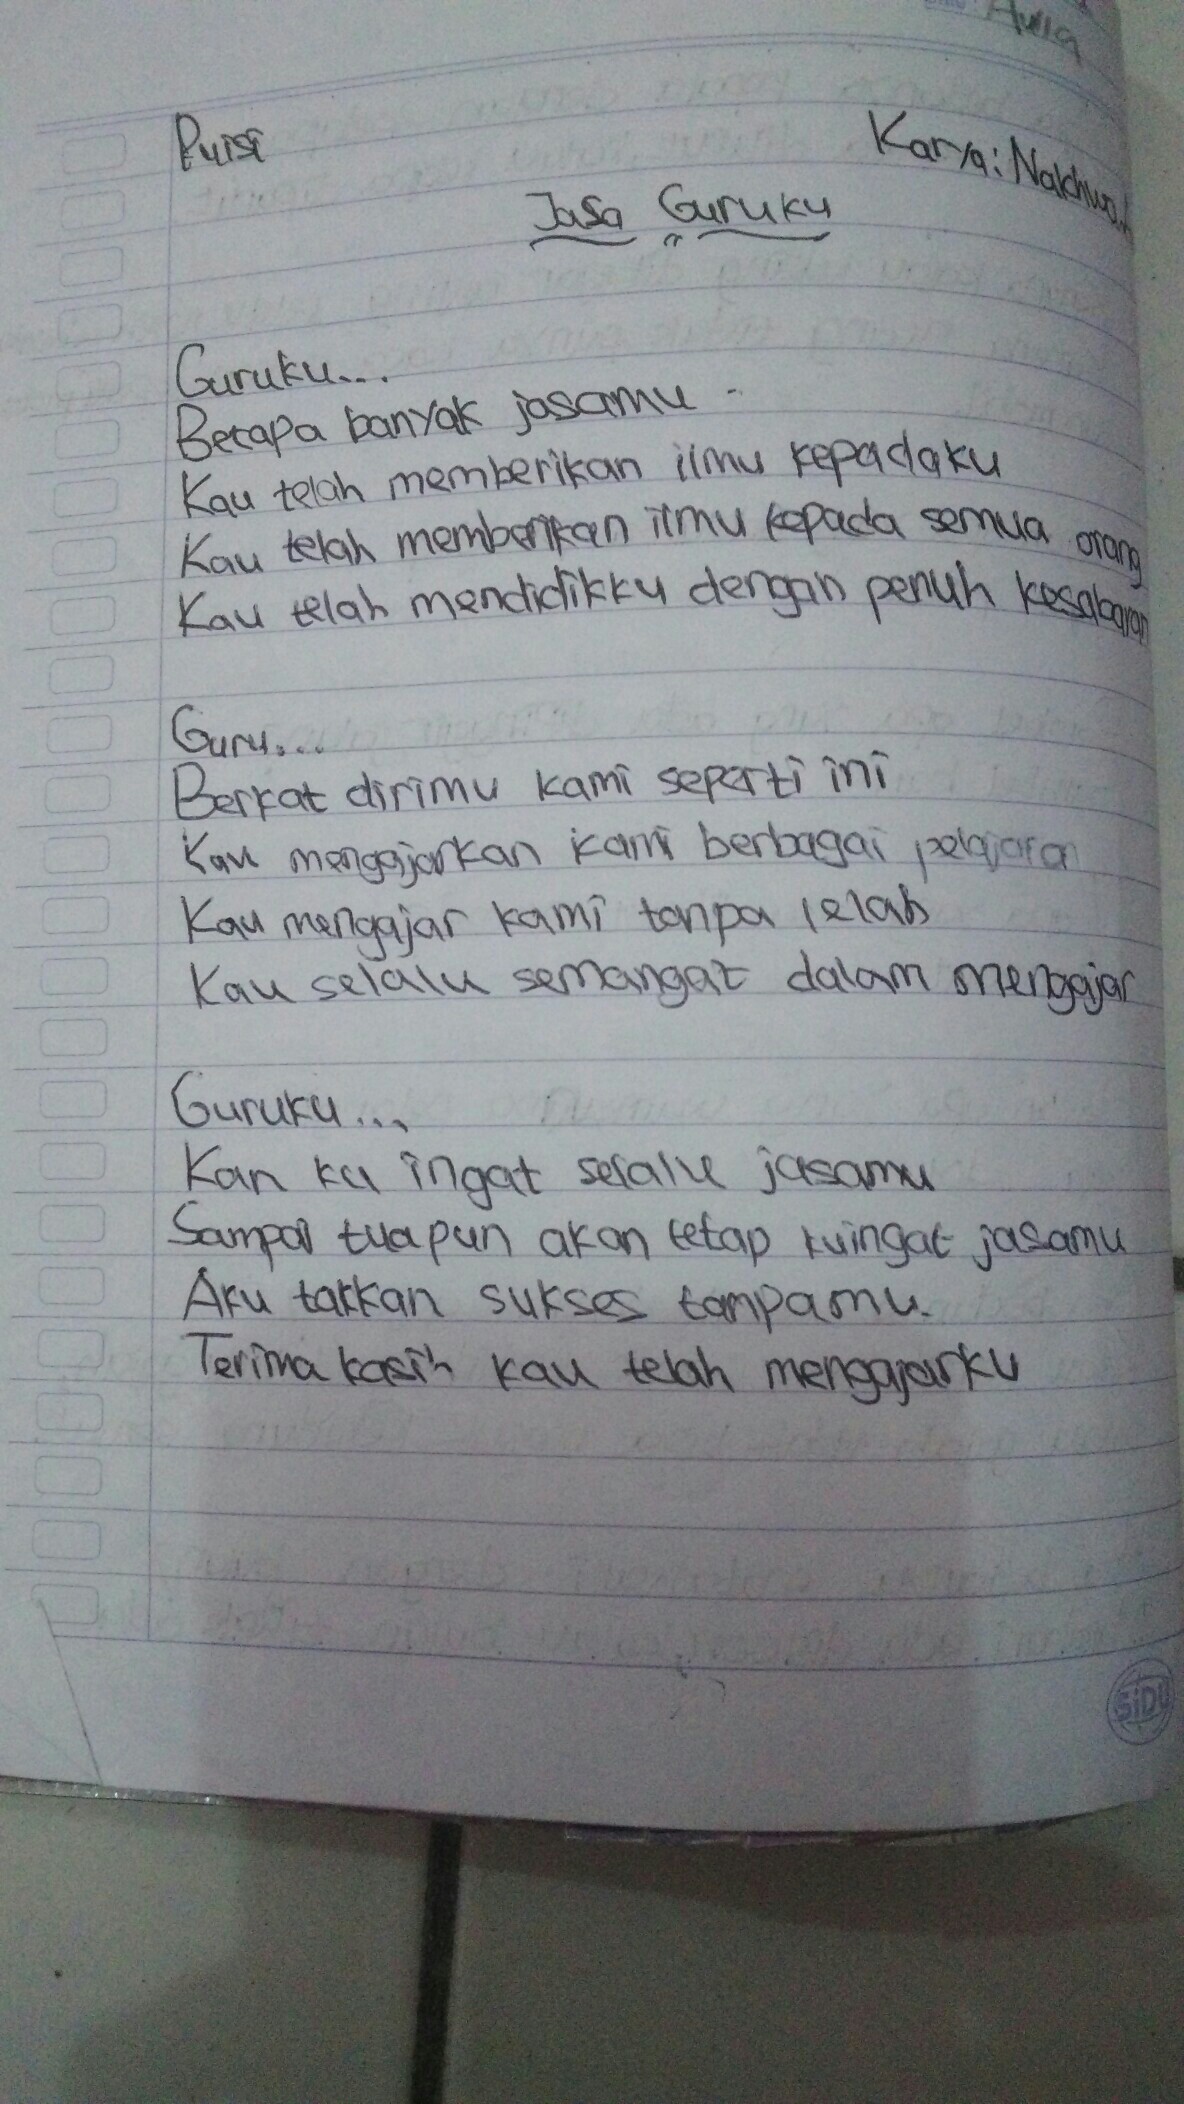 Aulia
Puisi
Karya: Nakhwa.
Jasa Guruku
Guruku....
Betapa banyak jasamu
Kau telah memberikan ilmu kepadaku
Kau telah memberikan ilmu kepada semua orang
Kau telah mendidikku dengan penuh kesabaran
Guru....
Berkat dirimu kami seperti ini
Kau mengajarkan kami berbagai pelajaran
Kau mengajar kami tanpa lelah
Kau selalu semangat dalam mengajar
Guruku...,
Kan ku ingat selalu jasamu
Sampai tuapun akan tetap kuingat jasamu
Aku takkan sukses tampamu.
Terima kasih kau telah mengajarku
SiDU